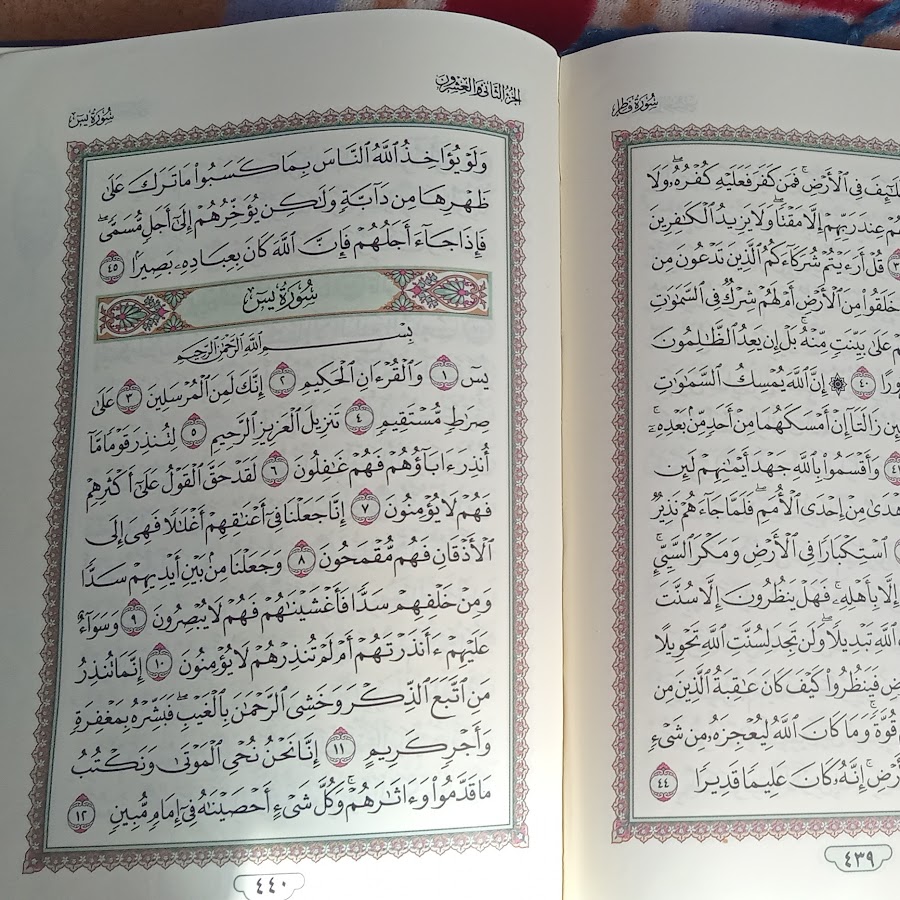 سُورَةُ فَاطِرٍ
فِي ٱلْأَرْضِ ۚ فَمَن كَفَرَ فَعَلَيْهِ كُفْرُهُۥ ۖ وَلَا
عِندَ رَبِّهِمْ إِلَّا مَقْتًا ۖ وَلَا يَزِيدُ ٱلْكَٰفِرِينَ
قُلْ أَرَءَيْتُمْ شُرَكَآءَكُمُ ٱلَّذِينَ تَدْعُونَ مِن
خَلَقُوا۟ مِنَ ٱلْأَرْضِ أَمْ لَهُمْ شِرْكٌ فِي ٱلسَّمَٰوَٰتِ
عَلَىٰ بَيِّنَتٍ مِّنْهُ ۚ بَلْ إِن يَعِدُ ٱلظَّٰلِمُونَ
٤٠ ۞ إِنَّ ٱللَّهَ يُمْسِكُ ٱلسَّمَٰوَٰتِ
زَالَتَآ إِنْ أَمْسَكَهُمَا مِنْ أَحَدٍ مِّنۢ بَعْدِهِۦٓ ۚ
وَأَقْسَمُوا۟ بِٱللَّهِ جَهْدَ أَيْمَٰنِهِمْ لَئِن
مِنْ إِحْدَى ٱلْأُمَمِ ۖ فَلَمَّا جَآءَهُمْ نَذِيرٌ
ٱسْتِكْبَارًا فِي ٱلْأَرْضِ وَمَكْرَ ٱلسَّيِّئِ ۚ
إِلَّا بِأَهْلِهِۦ ۚ فَهَلْ يَنظُرُونَ إِلَّا سُنَّتَ
ٱللَّهِ تَبْدِيلًا ۖ وَلَن تَجِدَ لِسُنَّتِ ٱللَّهِ تَحْوِيلًا
فَيَنظُرُوا۟ كَيْفَ كَانَ عَٰقِبَةُ ٱلَّذِينَ مِن
قُوَّةً ۚ وَمَا كَانَ ٱللَّهُ لِيُعْجِزَهُۥ مِن شَىْءٍ
إِنَّهُۥ كَانَ عَلِيمًا قَدِيرًا ٤٤
٤٣٩
الجُزْءُ الثَّانِي وَالْعِشْرُونَ
سُورَةُ يسٓ
وَلَوْ يُؤَاخِذُ ٱللَّهُ ٱلنَّاسَ بِمَا كَسَبُوا۟ مَا تَرَكَ عَلَىٰ
ظَهْرِهَا مِن دَآبَّةٍ وَلَٰكِن يُؤَخِّرُهُمْ إِلَىٰٓ أَجَلٍ مُّسَمًّى ۖ
فَإِذَا جَآءَ أَجَلُهُمْ فَإِنَّ ٱللَّهَ كَانَ بِعِبَادِهِۦ بَصِيرًۢا ٤٥
سُورَةُ يسٓ
بِسْمِ ٱللَّهِ ٱلرَّحْمَٰنِ ٱلرَّحِيمِ
يسٓ ١ وَٱلْقُرْءَانِ ٱلْحَكِيمِ ٢ إِنَّكَ لَمِنَ ٱلْمُرْسَلِينَ ٣ عَلَىٰ
صِرَٰطٍ مُّسْتَقِيمٍ ٤ تَنزِيلَ ٱلْعَزِيزِ ٱلرَّحِيمِ ٥ لِتُنذِرَ قَوْمًا مَّآ
أُنذِرَ ءَابَآؤُهُمْ فَهُمْ غَٰفِلُونَ ٦ لَقَدْ حَقَّ ٱلْقَوْلُ عَلَىٰٓ أَكْثَرِهِمْ
فَهُمْ لَا يُؤْمِنُونَ ٧ إِنَّا جَعَلْنَا فِىٓ أَعْنَٰقِهِمْ أَغْلَٰلًا فَهِىَ إِلَى
ٱلْأَذْقَانِ فَهُم مُّقْمَحُونَ ٨ وَجَعَلْنَا مِنۢ بَيْنِ أَيْدِيهِمْ سَدًّا
وَمِنْ خَلْفِهِمْ سَدًّا فَأَغْشَيْنَٰهُمْ فَهُمْ لَا يُبْصِرُونَ ٩ وَسَوَآءٌ
عَلَيْهِمْ ءَأَنذَرْتَهُمْ أَمْ لَمْ تُنذِرْهُمْ لَا يُؤْمِنُونَ ١٠ إِنَّمَا تُنذِرُ
مَنِ ٱتَّبَعَ ٱلذِّكْرَ وَخَشِىَ ٱلرَّحْمَٰنَ بِٱلْغَيْبِ ۖ فَبَشِّرْهُ بِمَغْفِرَةٍ
وَأَجْرٍ كَرِيمٍ ١١ إِنَّا نَحْنُ نُحْىِ ٱلْمَوْتَىٰ وَنَكْتُبُ
مَا قَدَّمُوا۟ وَءَاثَٰرَهُمْ ۚ وَكُلَّ شَىْءٍ أَحْصَيْنَٰهُ فِىٓ إِمَامٍ مُّبِينٍ ١٢
٤٤٠